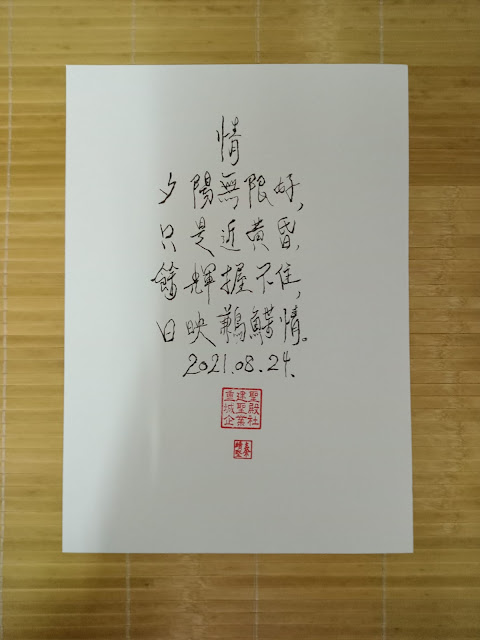 情
夕陽無限好,
只是近黃昏,
餘輝握不住,
日映鶼鰈情。
2021.08.24.